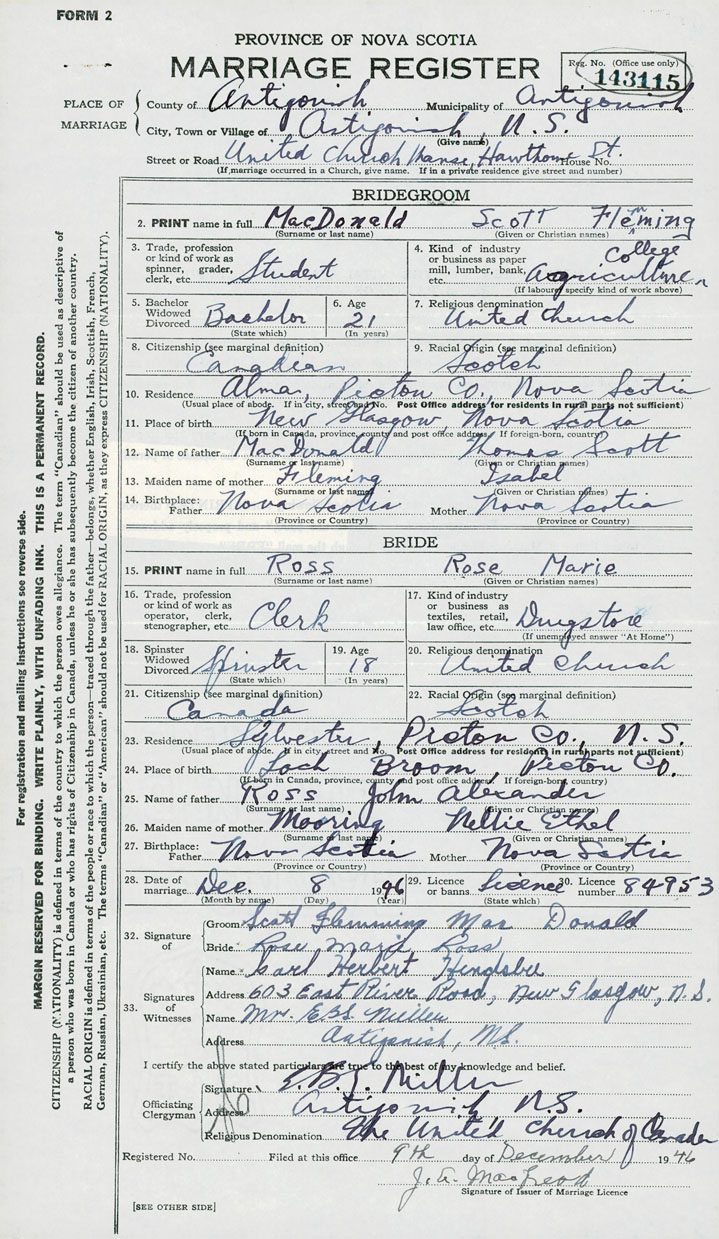 FORM 2
PROVINCE OF NOVA SCOTIA
MARRIAGE REGISTER
Reg. No. (Office use only)
143115
PLACE OF MARRIAGE
County of Antigonish Municipality of Antigonish
City, Town or Village of Antigonish, N.S.
(Give name)
Street or Road United Church Manse, Hawthorne St. House No.
(If marriage occurred in a Church, give name. If in a private residence give street and number)
BRIDEGROOM
2. PRINT name in full MacDonald Scott Flemming
(Surname or last name) (Given or Christian names)
3. Trade, profession or kind of work as spinner, grader, clerk, etc. Student
4. Kind of industry or business as paper mill, lumber, bank, etc. College Agriculture
(If labourer specify kind of work above)
5. Bachelor Widowed Divorced Bachelor
(State which)
6. Age 21
(In years)
7. Religious denomination
United Church
8. Citizenship (see marginal definition)
Canadian
9. Racial Origin (see marginal definition)
Scotch
10. Residence Alma, Picton Co., Nova Scotia
(Usual place of abode. If in city, street and No. Post Office address for residents in rural parts not sufficient)
11. Place of birth New Glasgow, Nova Scotia
(If born in Canada, province, county and post office address. If foreign-born, country)
12. Name of father MacDonald Thomas Scott
(Surname or last name) (Given or Christian names)
13. Maiden name of mother Fleming Isabel
(Surname or last name) (Given or Christian names)
14. Birthplace: Father Nova Scotia Mother Nova Scotia
(Province or Country) (Province or Country)
BRIDE
15. PRINT name in full Ross Rose Marie
(Surname or last name) (Given or Christian names)
16. Trade, profession or kind of work as operator, clerk, stenographer, etc. Clerk
17. Kind of industry or business as textiles, retail, law office, etc. Drugstore
(If unemployed answer "At Home")
18. Spinster Widowed Divorced Spinster
(State which)
19. Age 18
(In years)
20. Religious denomination
United Church
21. Citizenship (see marginal definition)
Canada
22. Racial Origin (see marginal definition)
Scotch
23. Residence Sylvester, Picton Co., N.S.
(Usual place of abode. If in city street and No. Post Office address for residents in rural parts not sufficient)
24. Place of birth Loch Broom, Picton Co.
(If born in Canada, province, county and post office address. If foreign-born, country)
25. Name of father Ross John Alexander
(Surname or last name) (Given or Christian names)
26. Maiden name of mother Mooring Nellie Ethel
(Surname or last name) (Given or Christian names)
27. Birthplace: Father Nova Scotia Mother Nova Scotia
(Province or Country) (Province or Country)
28. Date of marriage Dec. 8 1946
(Month by name) (Day) (Year)
29. License or banns Licence
(State which)
30. Licence number 84953
32. Signature of
Groom Scott Flemming MacDonald
Bride Rose Marie Ross
33. Signatures of Witnesses
Name Earl Herbert
Address 603 East River Road, New Glasgow, N.S.
Name Mrs. E.B.S. Miller
Address Antigonish, N.S.
I certify the above stated particulars are true to the best of my knowledge and belief.
Officiating Clergyman
Signature Miller
Address Antigonish N.S.
Religious Denomination The United Church of Canada
Registered No. Filed at this office 9th day of December 1946
J.A. MacLeod
Signature of Issuer of Marriage Licence
[SEE OTHER SIDE]
For registration and mailing instructions see reverse side.
MARGIN RESERVED FOR BINDING. WRITE PLAINLY, WITH UNFADING INK. THIS IS A PERMANENT RECORD.
CITIZENSHIP (NATIONALITY) is defined in terms of the country to which the person owes allegiance. The term "Canadian" should be used as descriptive of
a person who was born in Canada or who has rights of Citizenship in Canada, unless he or she has subsequently become the citizen of another country.
RACIAL ORIGIN is defined in terms of the people or race to which the person—traced through the father—belongs, whether English, Irish, Scottish, French,
German, Russian, Ukrainian, etc. The terms "Canadian" or "American" should not be used for RACIAL ORIGIN, as they express CITIZENSHIP (NATIONALITY).